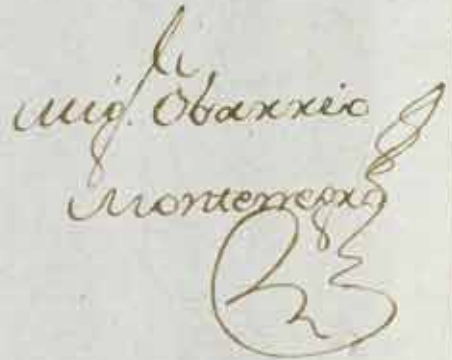 Migl. Obarrio
Montenegro